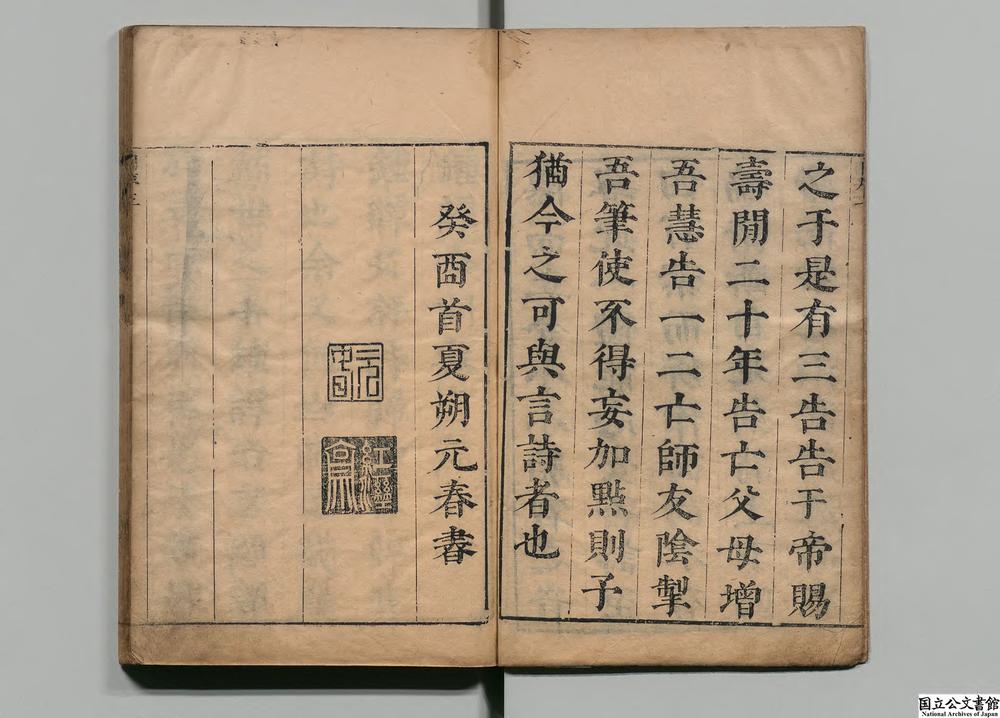 之于是有三告告于帝賜
壽閒二十年告亡父母增
吾慧告一二亡師友陰掣
吾筆使不得妄加點則予
猶今之可與言詩者也
癸酉首夏朔元春書
国立公文書館
National Archives of Japan